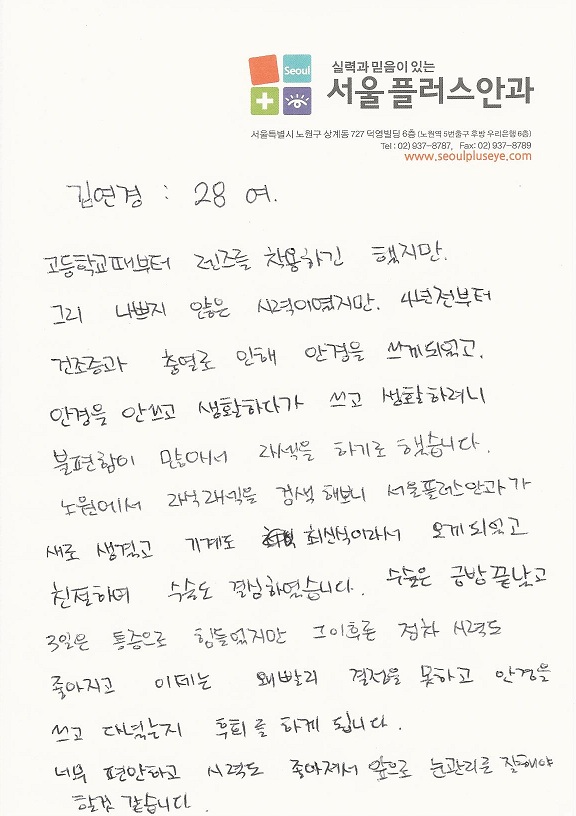 Seoul
실력과 믿음이 있는
서울플러스안과
서울특별시 노원구 상계동 727 덕영빌딩 6층 (노원역 5번출구 후방 우리은행 6층)
Tel : 02) 937-8787, Fax: 02) 937-8789
www.seoulpluseye.com
김연경 : 28 여.
고등학교때부터 렌즈를 착용하긴 했지만.
그리 나쁘지 않은 시력이였지만. 4년전부터
건조증과 충열로 인해 안경을 쓰게되었고.
안경을 안쓰고 생활하다가 쓰고 생활하려니
불편함이 많아서 라섹을 하기로 했습니다.
노원에서 라식라섹을 검색해보니 서울플러스안과가
새로 생겼고 기계도 최신식이라서 오게되었고
친절하여 수술도 결심하였습니다. 수술은 금방끝났고
3일은 통증으로 힘들었지만 그이후론 점차 시력도
좋아지고 이제는 왜빨리 결정을 못하고 안경을
쓰고 다녔는지 후회를 하게 됩니다.
너무 편안하고 시력도 좋아져서 앞으로 눈관리를 잘해야
할것 같습니다.